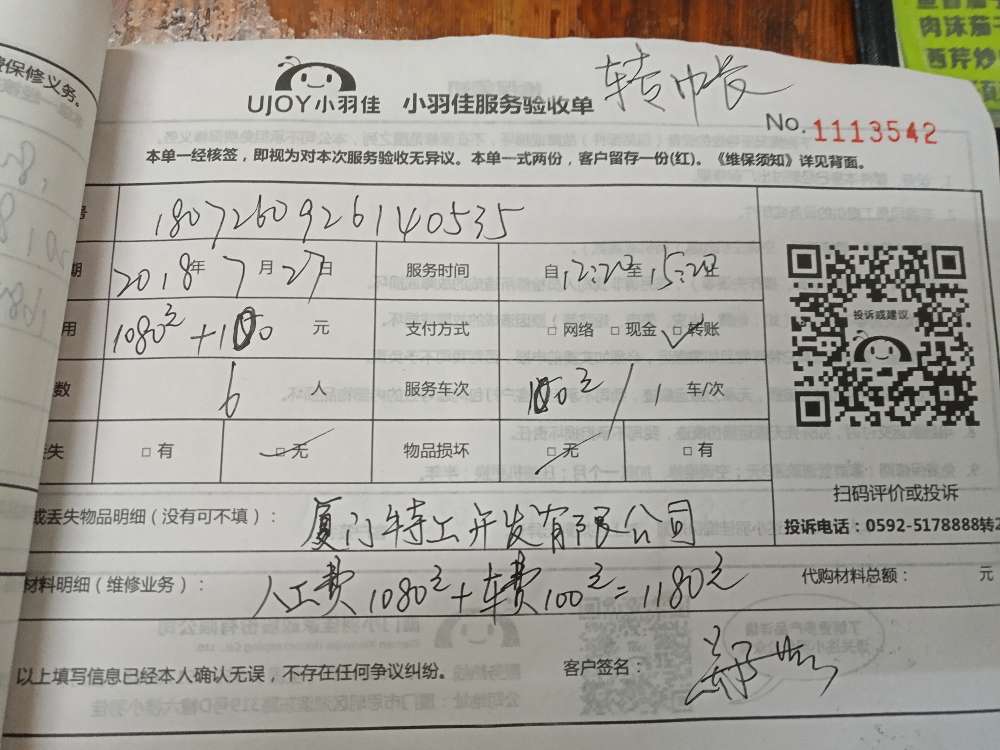 费保修义务。
肉沫茄
西芹炒
转巾长
UJOY小羽佳 小羽佳服务验收单
No. 1113542
本单一经核签，即视为对本次服务验收无异议。本单一式两份，客户留存一份(红)。《维保须知》详见背面。
号 180726092614 0535
期 2018年7月27日 服务时间 自12:20至15:20
用 1080元+100 元 支付方式 □网络 □现金 □转账
数 6 人 服务车次 100元/1 车/次
丢失 □有 □无 物品损坏 □无 □有
投诉或建议
扫码评价或投诉
投诉电话：0592-5178888转2
或丢失物品明细（没有可不填）： 厦门特工开发有限公司
材料明细（维修业务）： 人工费1080元+车费100元=1180元 代购材料总额： 元
以上填写信息已经本人确认无误，不存在任何争议纠纷。 客户签名：